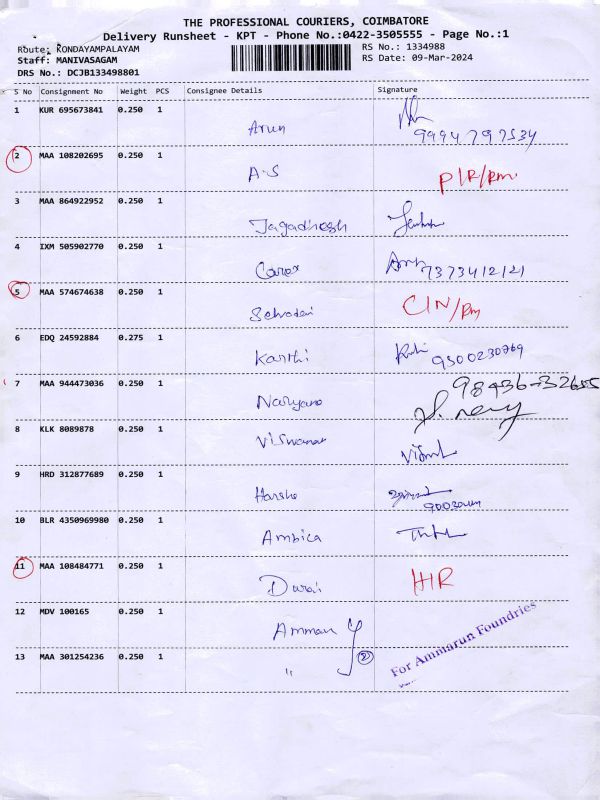 THE PROFESSIONAL COURIERS, COIMBATORE
Delivery Runsheet - KPT - Phone No.:0422-3505555 - Page No.:1
Route: KONDAYAMPALAYAM
Staff: MANIVASAGAM
DRS No.: DCJB133498801
RS No.: 1334988
RS Date: 09-Mar-2024
S No Consignment No Weight PCS Consignee Details Signature
1 KUR 695673841 0.250 1
Arun
9994797534
2 MAA 108202695 0.250 1
A.S P/R/Rm.
3 MAA 864922952 0.250 1
Jagadheesh
4 IXM 505902770 0.250 1
Carex 7373412121
5 MAA 574674638 0.250 1
Selvadevi C/N/Rm
6 EDQ 24592884 0.275 1
Karthi 9500230769
7 MAA 944473036 0.250 1
98436-32655
Naryana
8 KLK 8089878 0.250 1
Viswanat
9 HRD 312877689 0.250 1
Harsha
10 BLR 4350969980 0.250 1
Ambica
11 MAA 108484771 0.250 1
Durai H/R
12 MDV 100165 0.250 1
Amman
13 MAA 301254236 0.250 1
" 2
For Ammarun Foundries